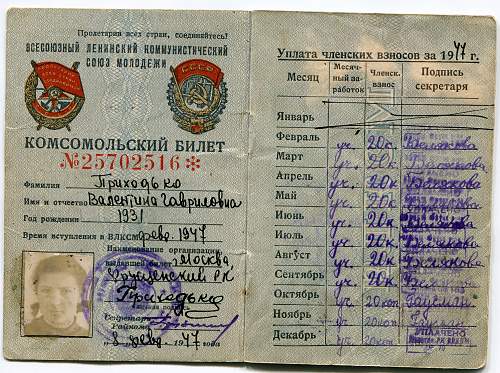 Пролетарии всех стран, соединяйтесь!
ВСЕСОЮЗНЫЙ ЛЕНИНСКИЙ КОММУНИСТИЧЕСКИЙ
СОЮЗ МОЛОДЕЖИ
СССР
КОМСОМОЛЬСКИЙ БИЛЕТ
№25702516*
Фамилия Приходько
Имя и отчество Валентина Гавриловна
Год рождения 1931
Время вступления в ВЛКСМ февр. 1947
Наименование организации,
выдавшей билет г. Москва
РК
Приходько
Личная подпись
Секретарь
Райкома
"8" февр. 1947 года
Уплата членских взносов за 1947 г.
Месяц Месячный заработок Членск. взнос Подпись секретаря
Январь
Февраль уч. 20к. Белякова
Март уч. 20к Белякова
Апрель уч. 20к Белякова
Май уч. 20к Белякова
Июнь уч. 20к Белякова
Июль уч. 20к. Белякова
Август уч. 20к Белякова
Сентябрь уч. 20к. Белякова
Октябрь уч. 20коп
Ноябрь уч. 20коп.
Декабрь уч. 20коп УПЛАЧЕНО